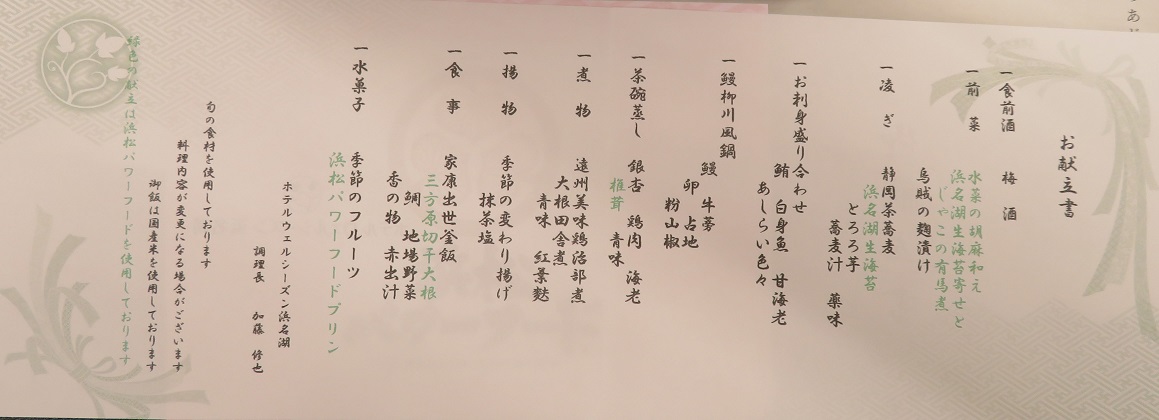 お献立書
一食前酒　梅　酒
一前　菜　水菜の胡麻和え
浜名湖生海苔寄せと
じゃこの有馬煮
烏賊の麹漬け
一凌　ぎ　静岡茶蕎麦
浜名湖生海苔
とろろ芋
蕎麦汁　薬味
一お刺身盛り合わせ
鮪　白身魚　甘海老
あしらい色々
一鰻柳川風鍋
鰻　牛蒡
卵　占地
粉山椒
一茶碗蒸し　銀杏　鶏肉　海老
椎茸　青味
一煮　物　遠州美味鶏治部煮
大根田舎煮
青味　紅葉麩
一揚　物　季節の変わり揚げ
抹茶塩
一食　事　家康出世釜飯
三方原切干大根
鯛　地場野菜
香の物　赤出汁
一水菓子　季節のフルーツ
浜松パワーフードプリン
ホテルウェルシーズン浜名湖
調理長　加藤　修也
旬の食材を使用しております
料理内容が変更になる場合がございます
御飯は国産米を使用しております
緑色の献立は浜松パワーフードを使用しております
あ